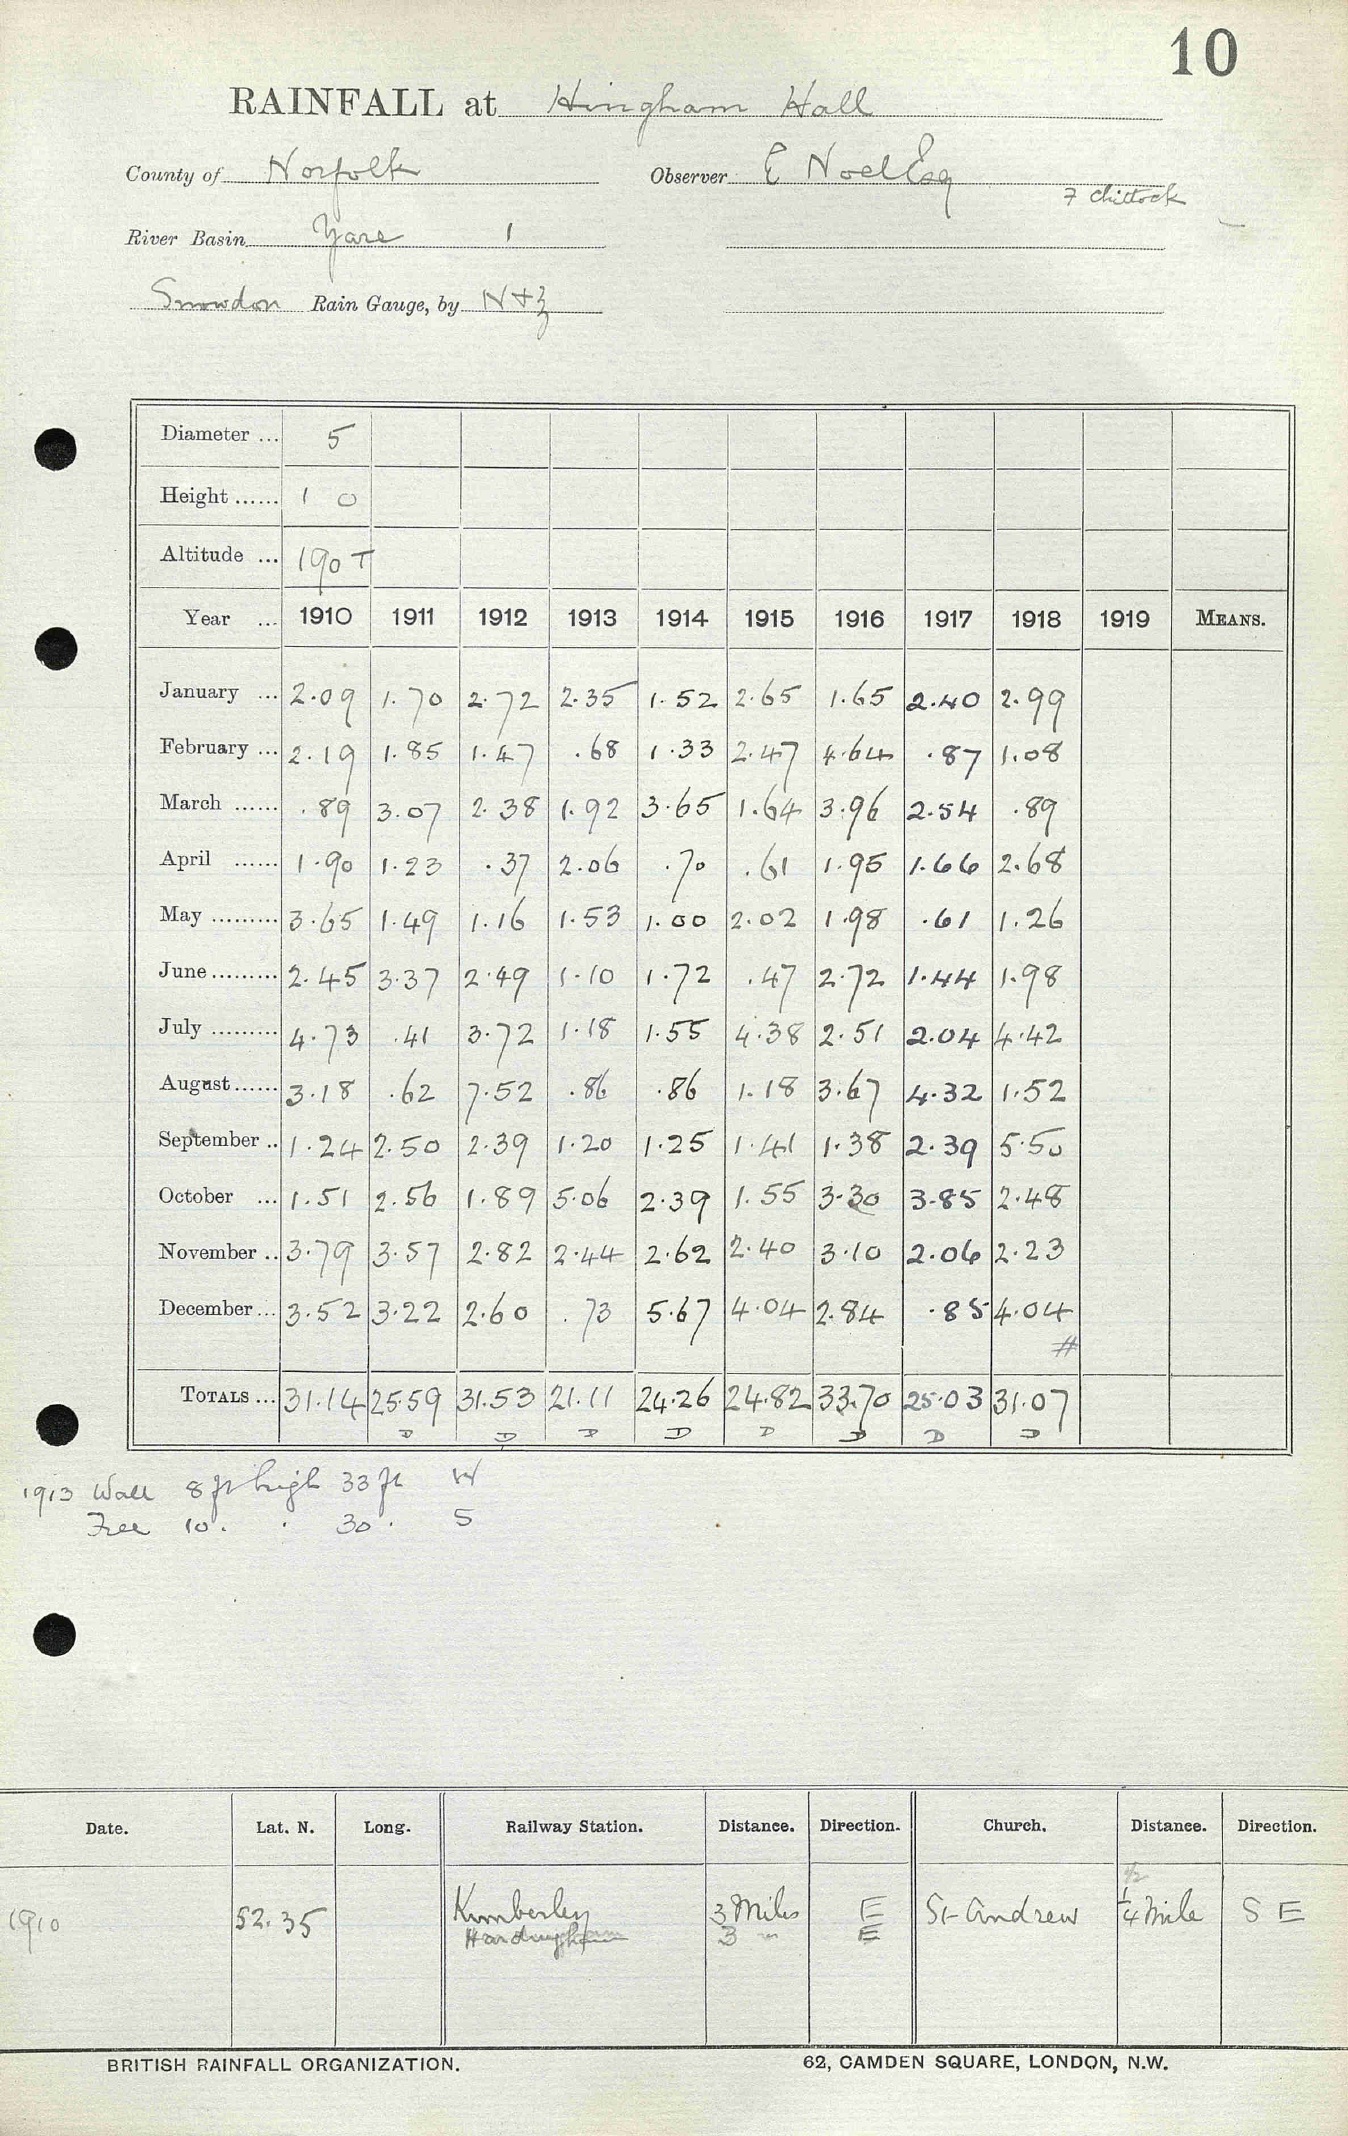 10
RAINFALL at Hingham Hall
County of Norfolk Observer E Noel Esq
F Chittock
River Basin Yare 1
Snowdon Rain Gauge, by N+Z
Diameter ... 5
Height ...... 1 0
Altitude ... 190 T
Year ... 1910 1911 1912 1913 1914 1915 1916 1917 1918 1919 MEANS.
January ... 2.09 1.70 2.72 2.35 1.52 2.65 1.65 2.40 2.99
February ... 2.19 1.85 1.47 .68 1.33 2.47 4.64 .87 1.08
March ...... .89 3.07 2.38 1.92 3.65 1.64 3.96 2.54 .89
April ...... 1.90 1.23 .37 2.06 .70 .61 1.95 1.66 2.68
May ......... 3.65 1.49 1.16 1.53 1.00 2.02 1.98 .61 1.26
June ......... 2.45 3.37 2.49 1.10 1.72 .47 2.72 1.44 1.98
July ......... 4.73 .41 3.72 1.18 1.55 4.38 2.51 2.04 4.42
August ...... 3.18 .62 7.52 .86 .86 1.18 3.67 4.32 1.52
September .. 1.24 2.50 2.39 1.20 1.25 1.41 1.38 2.39 5.50
October ... 1.51 2.56 1.89 5.06 2.39 1.55 3.30 3.85 2.48
November .. 3.79 3.57 2.82 2.44 2.62 2.40 3.10 2.06 2.23
December ... 3.52 3.22 2.60 .73 5.67 4.04 2.84 .85 4.04
#
TOTALS ... 31.14 25.59 31.53 21.11 24.26 24.82 33.70 25.03 31.07
D D D D D D D D
1913 Wall 8 ft high 33 ft W
Tree 10 . . 30 . S
Date. Lat. N. Long. Railway Station. Distance. Direction. Church. Distance. Direction.
1/2
1910 52.35 Kimberley 3 Miles E St Andrew 1/4 Mile S E
Hardingham 3 " E
BRITISH RAINFALL ORGANIZATION. 62, CAMDEN SQUARE, LONDON, N.W.